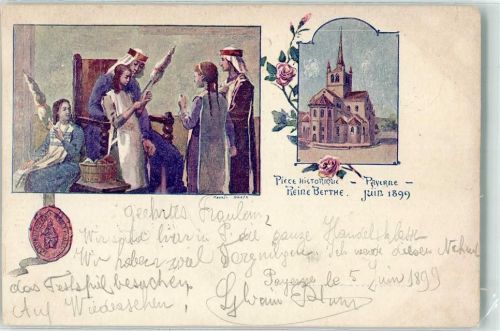 Pièce Historique – Payerne –
Reine Berthe. Juin 1899
geehrtes Fräulein?
Wir sind hier in P. die ganze Handelsklasse
Wir haben viel Vergnügen. Ich werde diesen
das Festspiel besuchen. Payerne le 5 Juin 1899
Auf Wiedersehen,